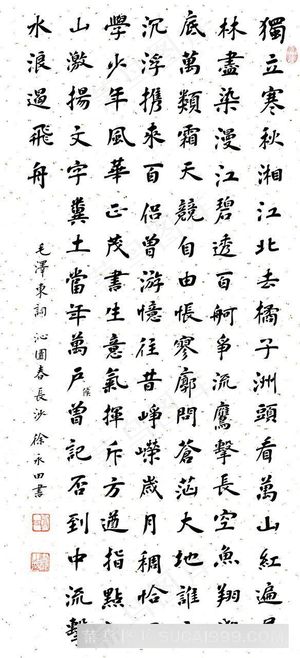 獨立寒秋湘江北去橘子洲頭看萬山紅遍
林盡染漫江碧透百舸爭流鷹擊長空魚翔
底萬類霜天競自由悵寥廓問蒼茫大地誰
沉浮携來百侶曾游憶往昔崢嶸歲月稠恰
學少年風華正茂書生意氣揮斥方遒指點
山激揚文字糞土當年萬戶侯曾記否到中流擊
水浪遏飛舟
毛澤東詞 沁園春長沙 徐永田書